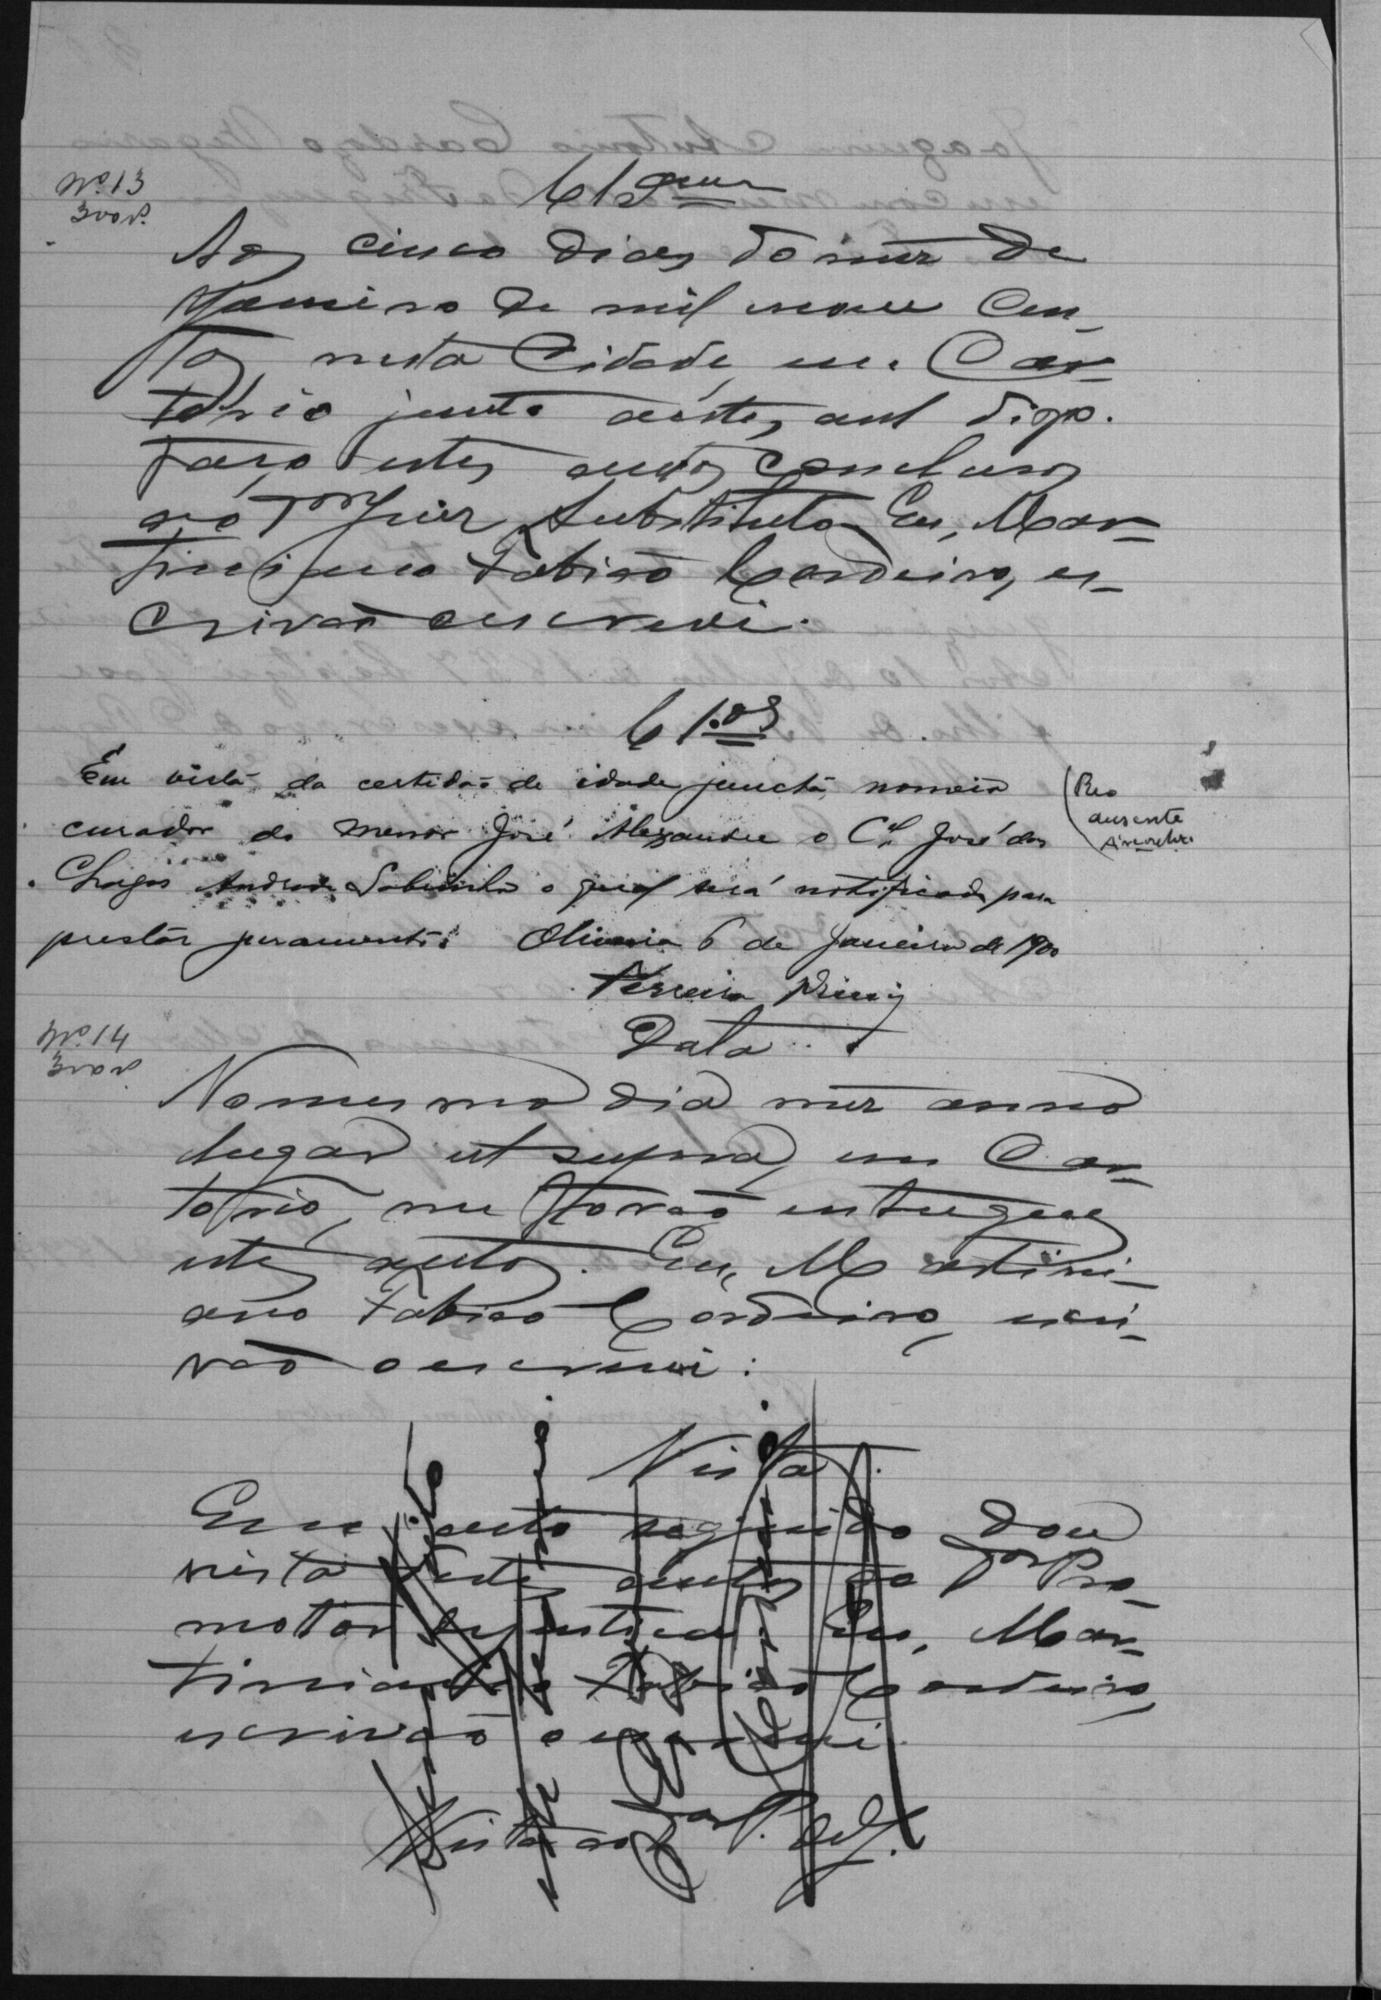 Nº 13
300 rs.
Clsam
Aos cinco dias do mez de
Janeiro de mil nove cen-
tos, nesta Cidade, em Car-
torio junto
Faço estes autos conclusos
ao Dor Juiz Substituto. Eu, Mar-
tiniano Fabiao Cordeiro, es-
crivão o escrevi.
Cl.os
Em vista da certidão de idade juncta, nomeio
curador do menor José Alexandre o Cel José das
Chagas Andrade Sobrinho o qual será notificado para
prestar juramento. Oliveira 6 de Janeiro de 1900
Ferreira
Reo
ausente
Nº 14
300 rs
Data
No mesmo dia mez anno
lugar ut supra, em Car-
torio, me forão entregues
estes autos. Eu, Martini-
ano Fabiao Cordeiro, escri-
vão o escrevi:
Vista
E no acto seguido dou
vista destes autos ao Dor Pro-
motor de Justica. Eu, Mar-
tiniano Fabiao Cordeiro,
escrivão o escrevi.
Vista ao Dor P.